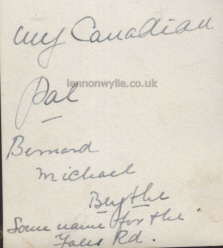 my Canadian
lennonwylie.co.uk
Pal
Bernard
Michael
Blythe
Some name for the
Falls Rd.